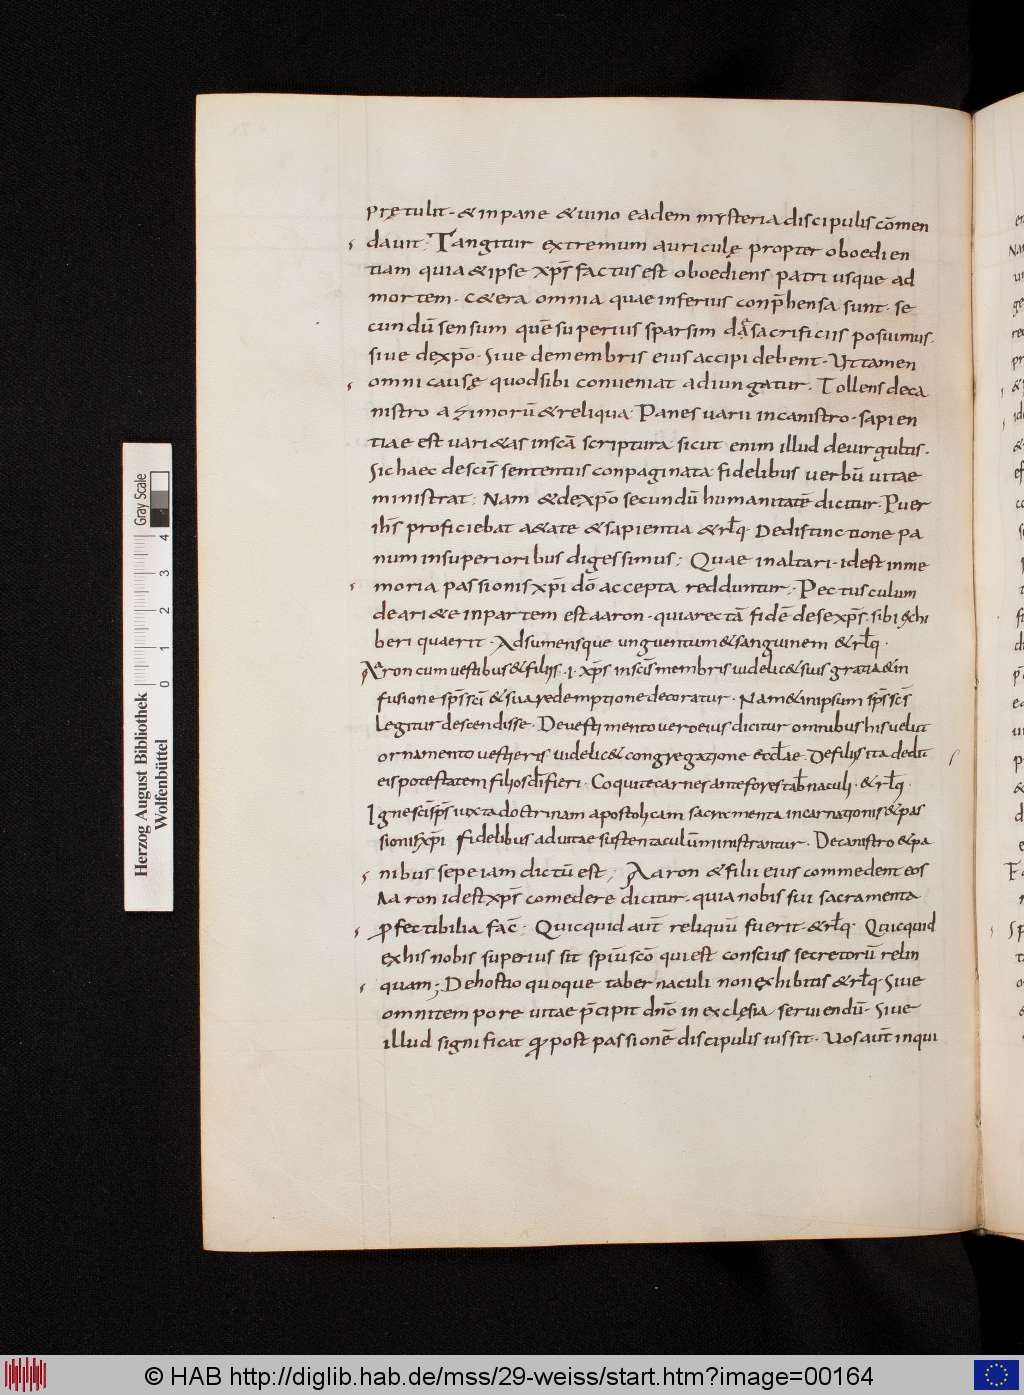 pretulit · & in pane & uino eadem mysteria discipulis cōmen
dauit · Tangitur extremum auriculę propter oboedien
tiam quia & ipse xp̄s factus est oboediens patri usque ad
mortem · C&era omnia quae inferius conp̄hensa sunt · se
cundū sensum quē superius sparsim dā sacrificiis posuimus ·
siue dexp̄o · Siue demembris eius accipi debent · Ut tamen
omni causę quodsibi conueniat adiungatur · Tollens deca
nistro azimorū & reliqua · Panes uarii in canistro · sapien
tiae est uari&as in sc̄a scriptura sicut enim illud deuirgultis ·
Sic haec descis̄ sententiis conpaginata fidelibus uerbū uitae
ministrat : Nam & dexp̄o secundū humanitatē dicitur · Puer
ih̄s proficiebat a&ate & sapientia & rl̄q · Dedistinctione pa
num in superioribus digessimus ; Quae in altari · idest in me
moria passionis xp̄i dō accepta redduntur ; Pectusculum
de ari&e in partem est aaron · quia rectā fidē dese xp̄s sibi exhi
beri quaerit · Adsumensque unguentum & sanguinem & rl̄q ·
Aaron cum uestibus & filiis · i · xp̄s in scis̄ membris uidelic& suis gratia & in
fusione sp̄s sc̄i & sua redemptione decoratur · Nam & in ipsum sp̄s sc̄s
legitur descendisse · De uestimento uero eius dicitur omnibus his uelut
ornamento uestieris uidelic& congregatione eccl̄ae · De filiis ita dedit
eis potestatem filios d̄i fieri · Coquite carnes ante fores tab̄naculi · & rl̄q ·
Igne sc̄i sp̄s iuxta doctrinam apostolicam sacramenta incarnationis & pas
sionis xp̄i fidelibus ad uitae sustentaculū ministrantur · De canistro & pa
nibus sepe iam dictū est ; Aaron & filii eius commedent eos
Aaron idest xp̄s comedere dicitur · quia nobis sui sacramenta
pfectibilia fac̄ · Quicquid aut̄ reliquū fuerit · & rl̄q · Quicquid
ex his nobis superius sit spiūscō qui est conscius secretorū relin
quam ; De hostio quoque tabernaculi non exhibitis & rl̄q · Siue
omni tempore uitae p̄cipit dn̄o in exclęsia seruiendū · Siue
illud significat qp post passionē discipulis iussit · Uos aut̄ inqui
Herzog August Bibliothek
Wolfenbüttel
0 1 2 3 4 Gray Scale
© HAB http://diglib.hab.de/mss/29-weiss/start.htm?image=00164